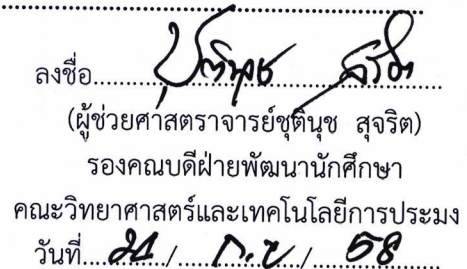 ลงชื่อ........ชุตินุช สุจริต........
(ผู้ช่วยศาสตราจารย์ชุตินุช สุจริต)
รองคณบดีฝ่ายพัฒนานักศึกษา
คณะวิทยาศาสตร์และเทคโนโลยีการประมง
วันที่......../..ก.ย../..58..